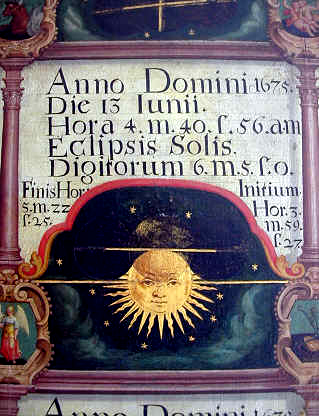 Anno Domini 1675.
Die 13 Iunii.
Hora 4. m. 40. ſ. 56. am
Eclipsis Solis.
Digitorum 6. m. 5. ſ. 0.
Finis Hor:
5. m. 22
ſ. 25.
Initium
Hor. 3.
m. 59.
ſ. 27.
Anno Domini